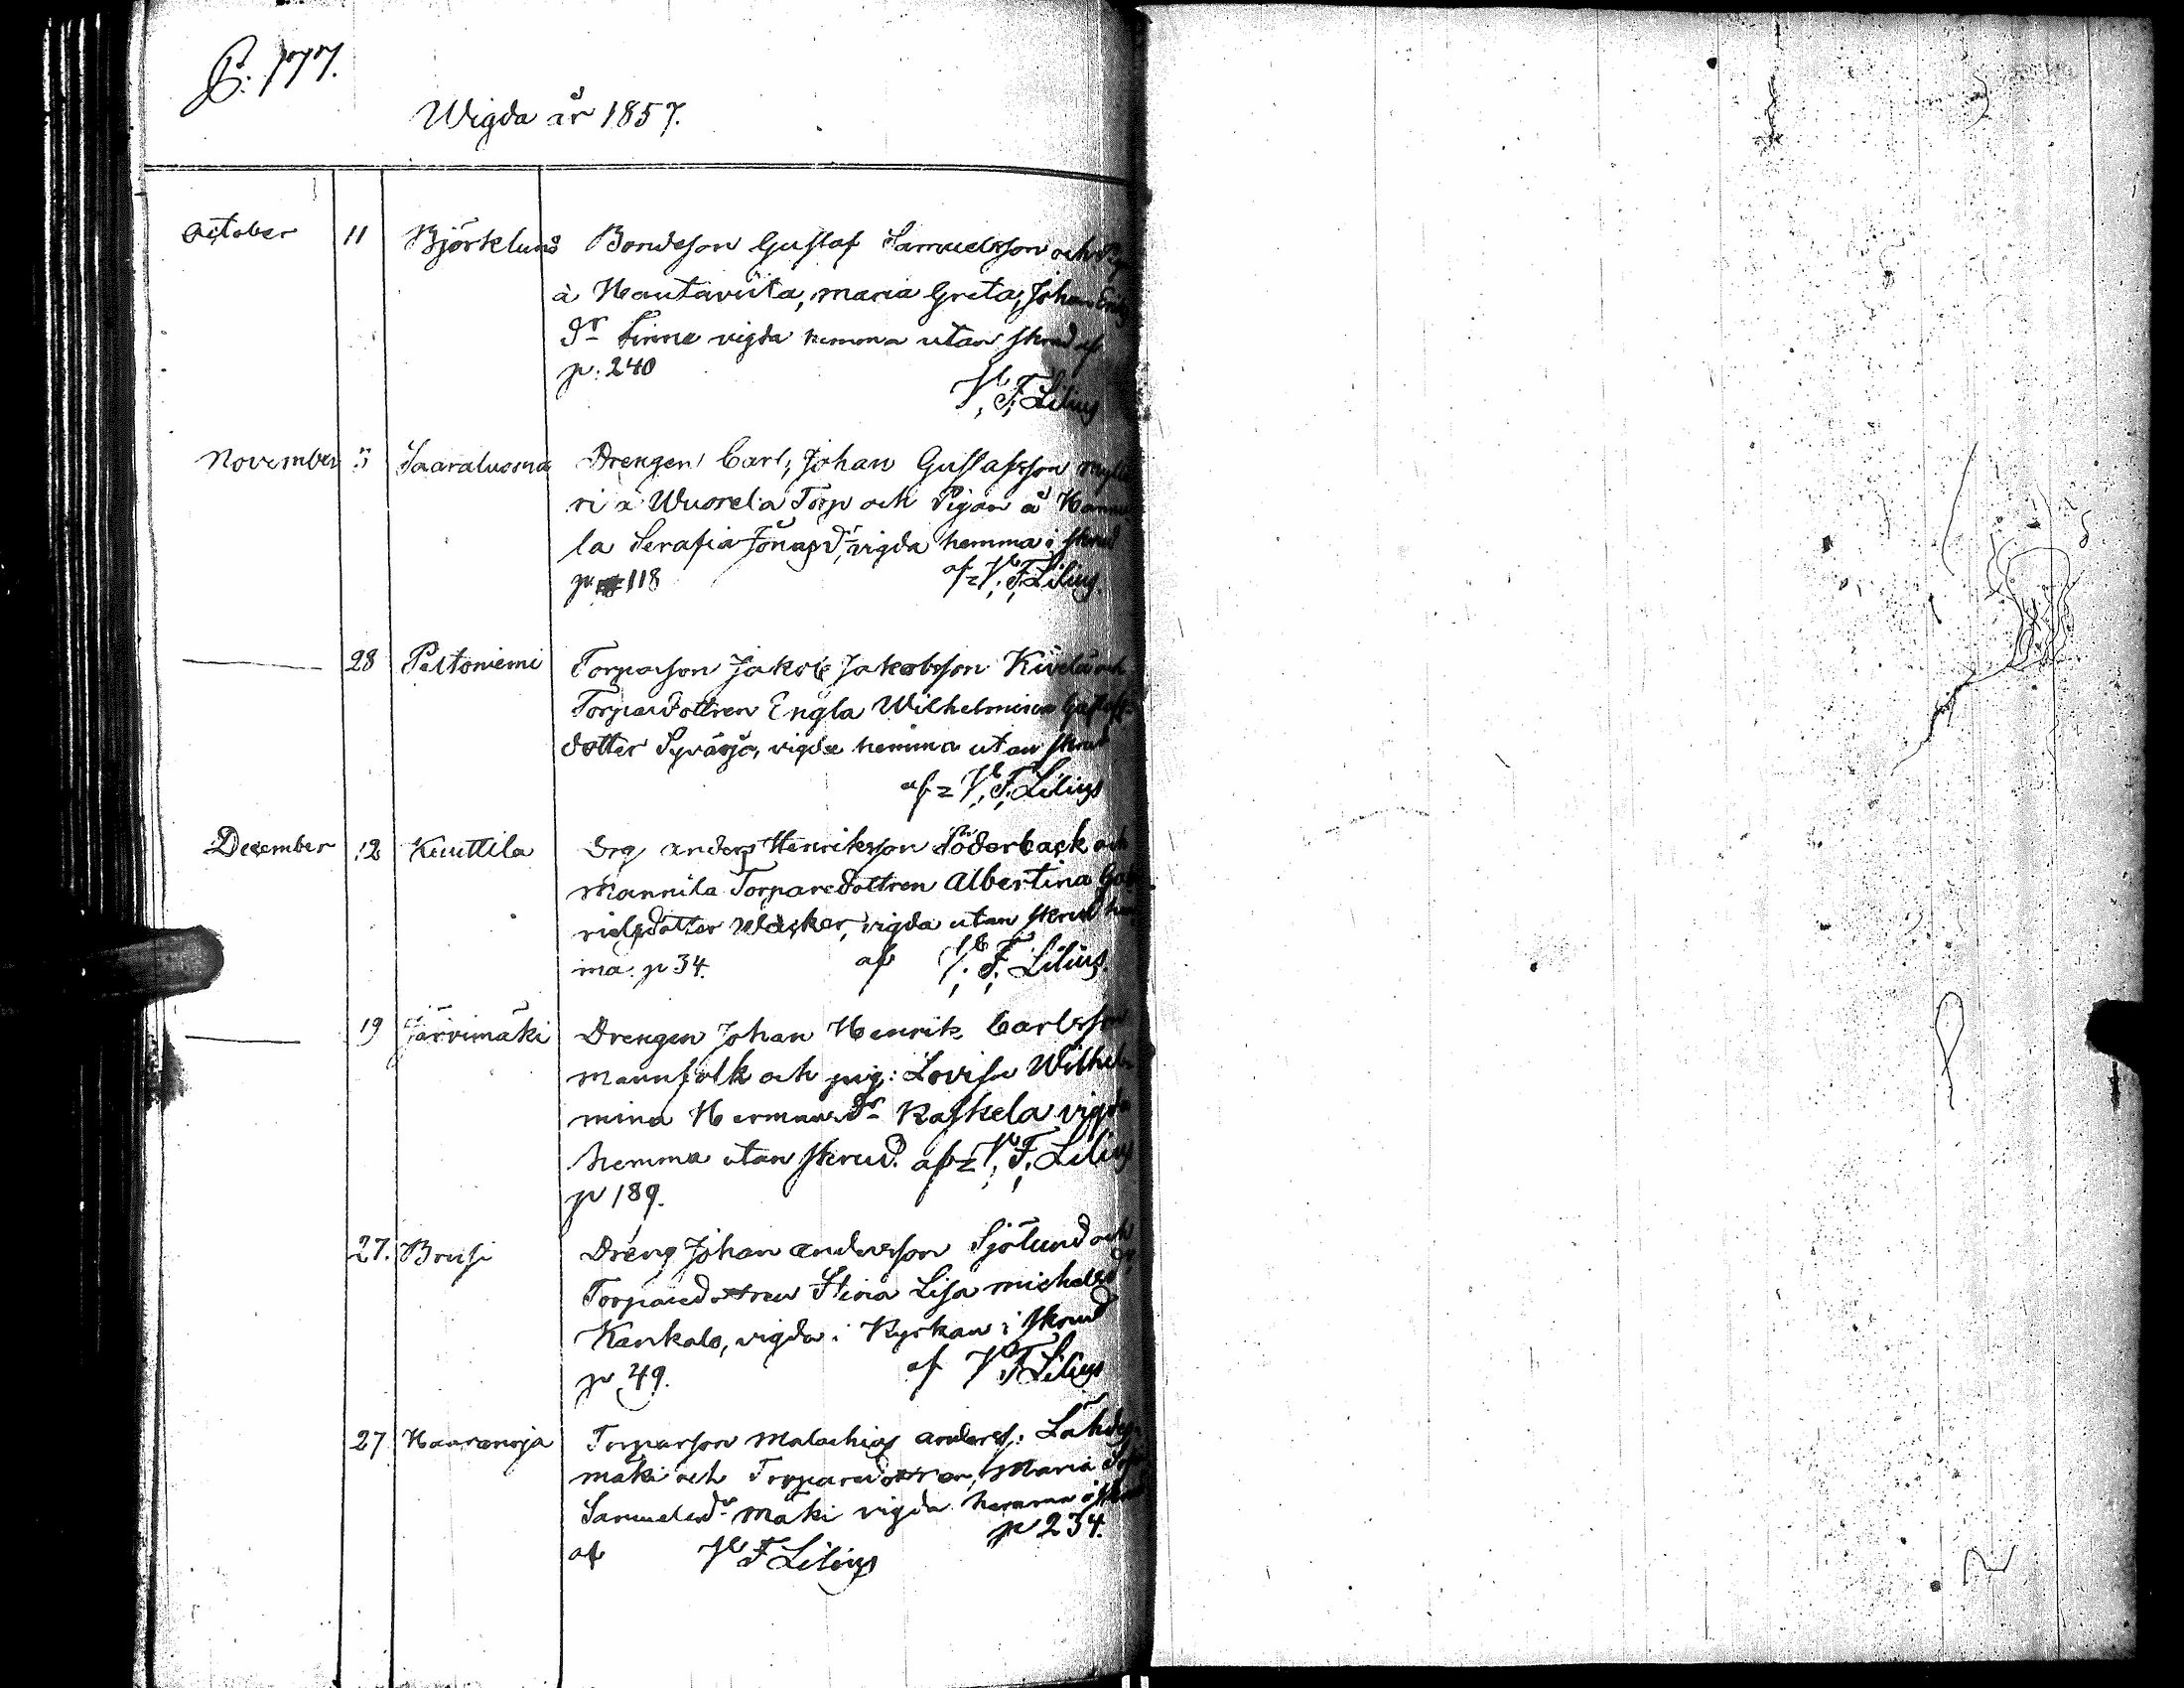 Wigda år 1857.
October 11 Björklund Bondeson Gustaf Samuelsson och
à Hautaviita, Maria Greta, Johan
dr Finne vigda hemma utan skrud af
p: 240
V. F. Lilius
November Saaraluoma Drengen Carl, Johan Gustafsson
ri à Wuorela Torp och Pigan å
la Serafia vigda hemma i skrud
p 118 af V. F. Lilius.
28 Peltoniemi Torparson Jakob Jakobsson och
Torparedottren Engla Wilhelmina
dotter vigda hemma utan skrud
af V. F. Lilius
December 12 Kuuttila Drg Anders Henriksson Söderback och
Mannila Torparedottren Albertina
rielsdotter vigda utan skrud
ma. p 34. af V. F. Lilius.
19 Järvimäki Drengen Johan Henrik Carlsson
Mannfolk och pig: Lovisa Wilhel
mina Hermansdr Kaskela vigda
hemma utan skrud. af V. F. Lilius
p 189.
27. Brusi Dreng Johan Andersson Sjölund och
Torparedottren Stina Lisa Michelsdr
Kankalo, vigda i Kyrkan i skrud
p 49. af V F Lilius
27 Haaranoja Torparson Malachias Anders: Lähdes
mäki och Torparedottren, Maria
Samuelsdr Mäki vigda hemma i skrud
p 234.
af V F Lilius